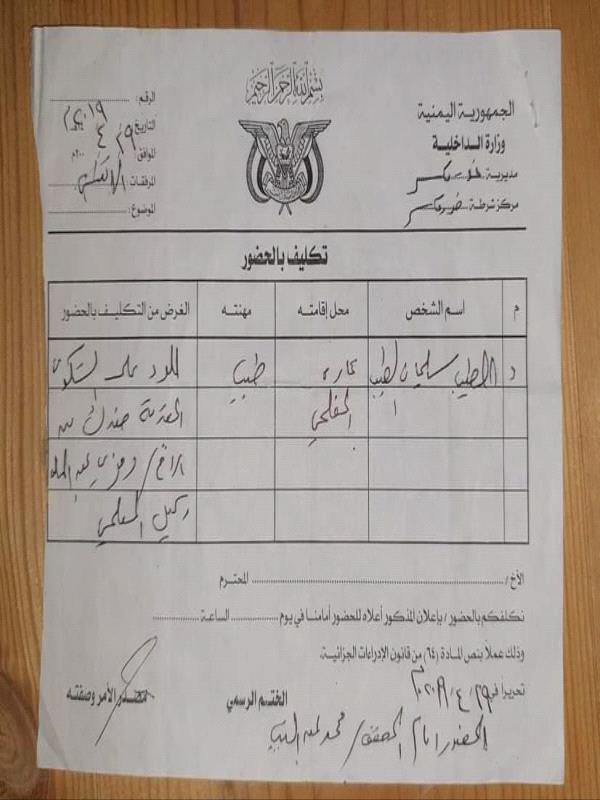 بسم الله الرحمن الرحيم
الجمهورية اليمنية
وزارة الداخلية
مديرية خورمكسر
مركز شرطة خورمكسر
الرقم :
التاريخ : ٢٠١٩م
الموافق : ٢٩/٤ ٢٠٠م
المرفقات :
الموضوع :
تكليف بالحضور
م اسم الشخص محل إقامته مهنته الغرض من التكليف بالحضور
د/ الطيب سليمان الطيب عمارة طبيب للرد على الشكوى
المفلحي المقدمة ضدك من
الأخ/ رمزي عبد الله
وكيل المفلحي
الأخ/ المحترم
نكلفكم بالحضور / بإعلان المذكور أعلاه للحضور أمامنا في يوم الساعة
وذلك عملاً بنص المادة (٦٤) من قانون الإدراءات الجزائية.
تحريراً في ٢٩/٤/٢٠١٩م
الختم الرسمي
مصدر الأمر وصفته
الحضور أمام المحقق/ محمد